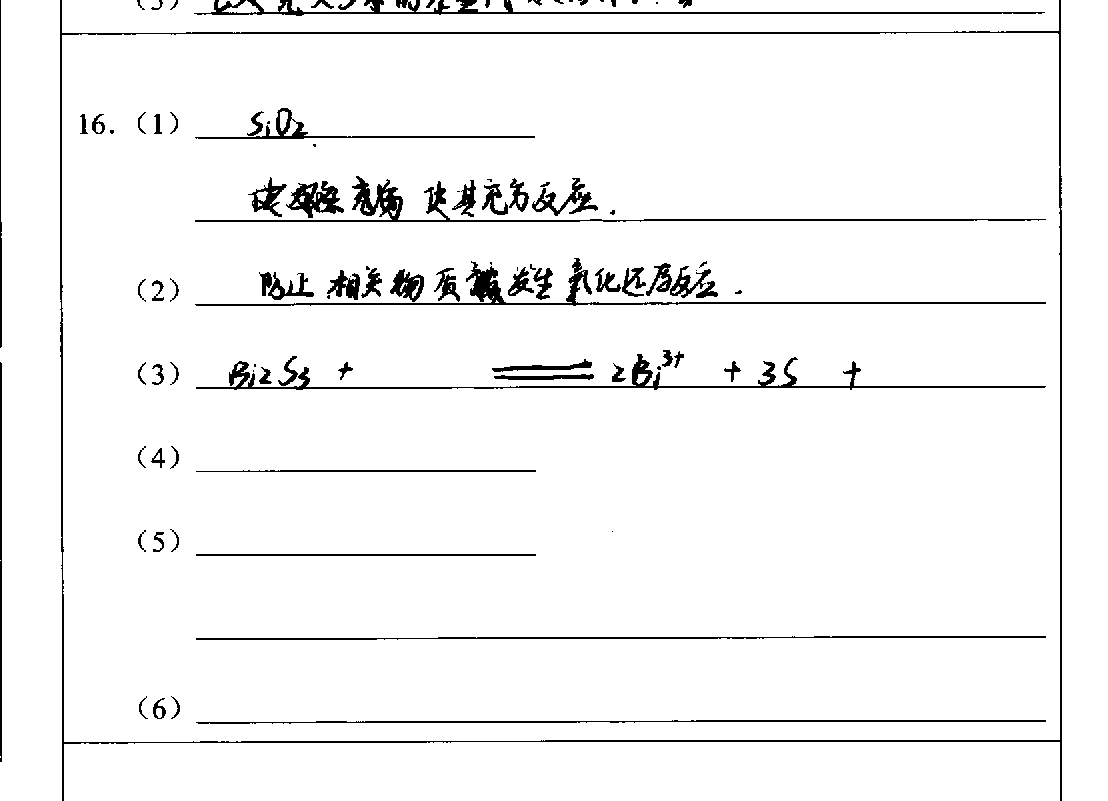 16.（1） SiO2
使其充分反应.
（2） 防止相关物质发生氧化还原反应.
（3） Bi2S3 + ═══ 2Bi^3+ + 3S +
（4）
（5）
（6）